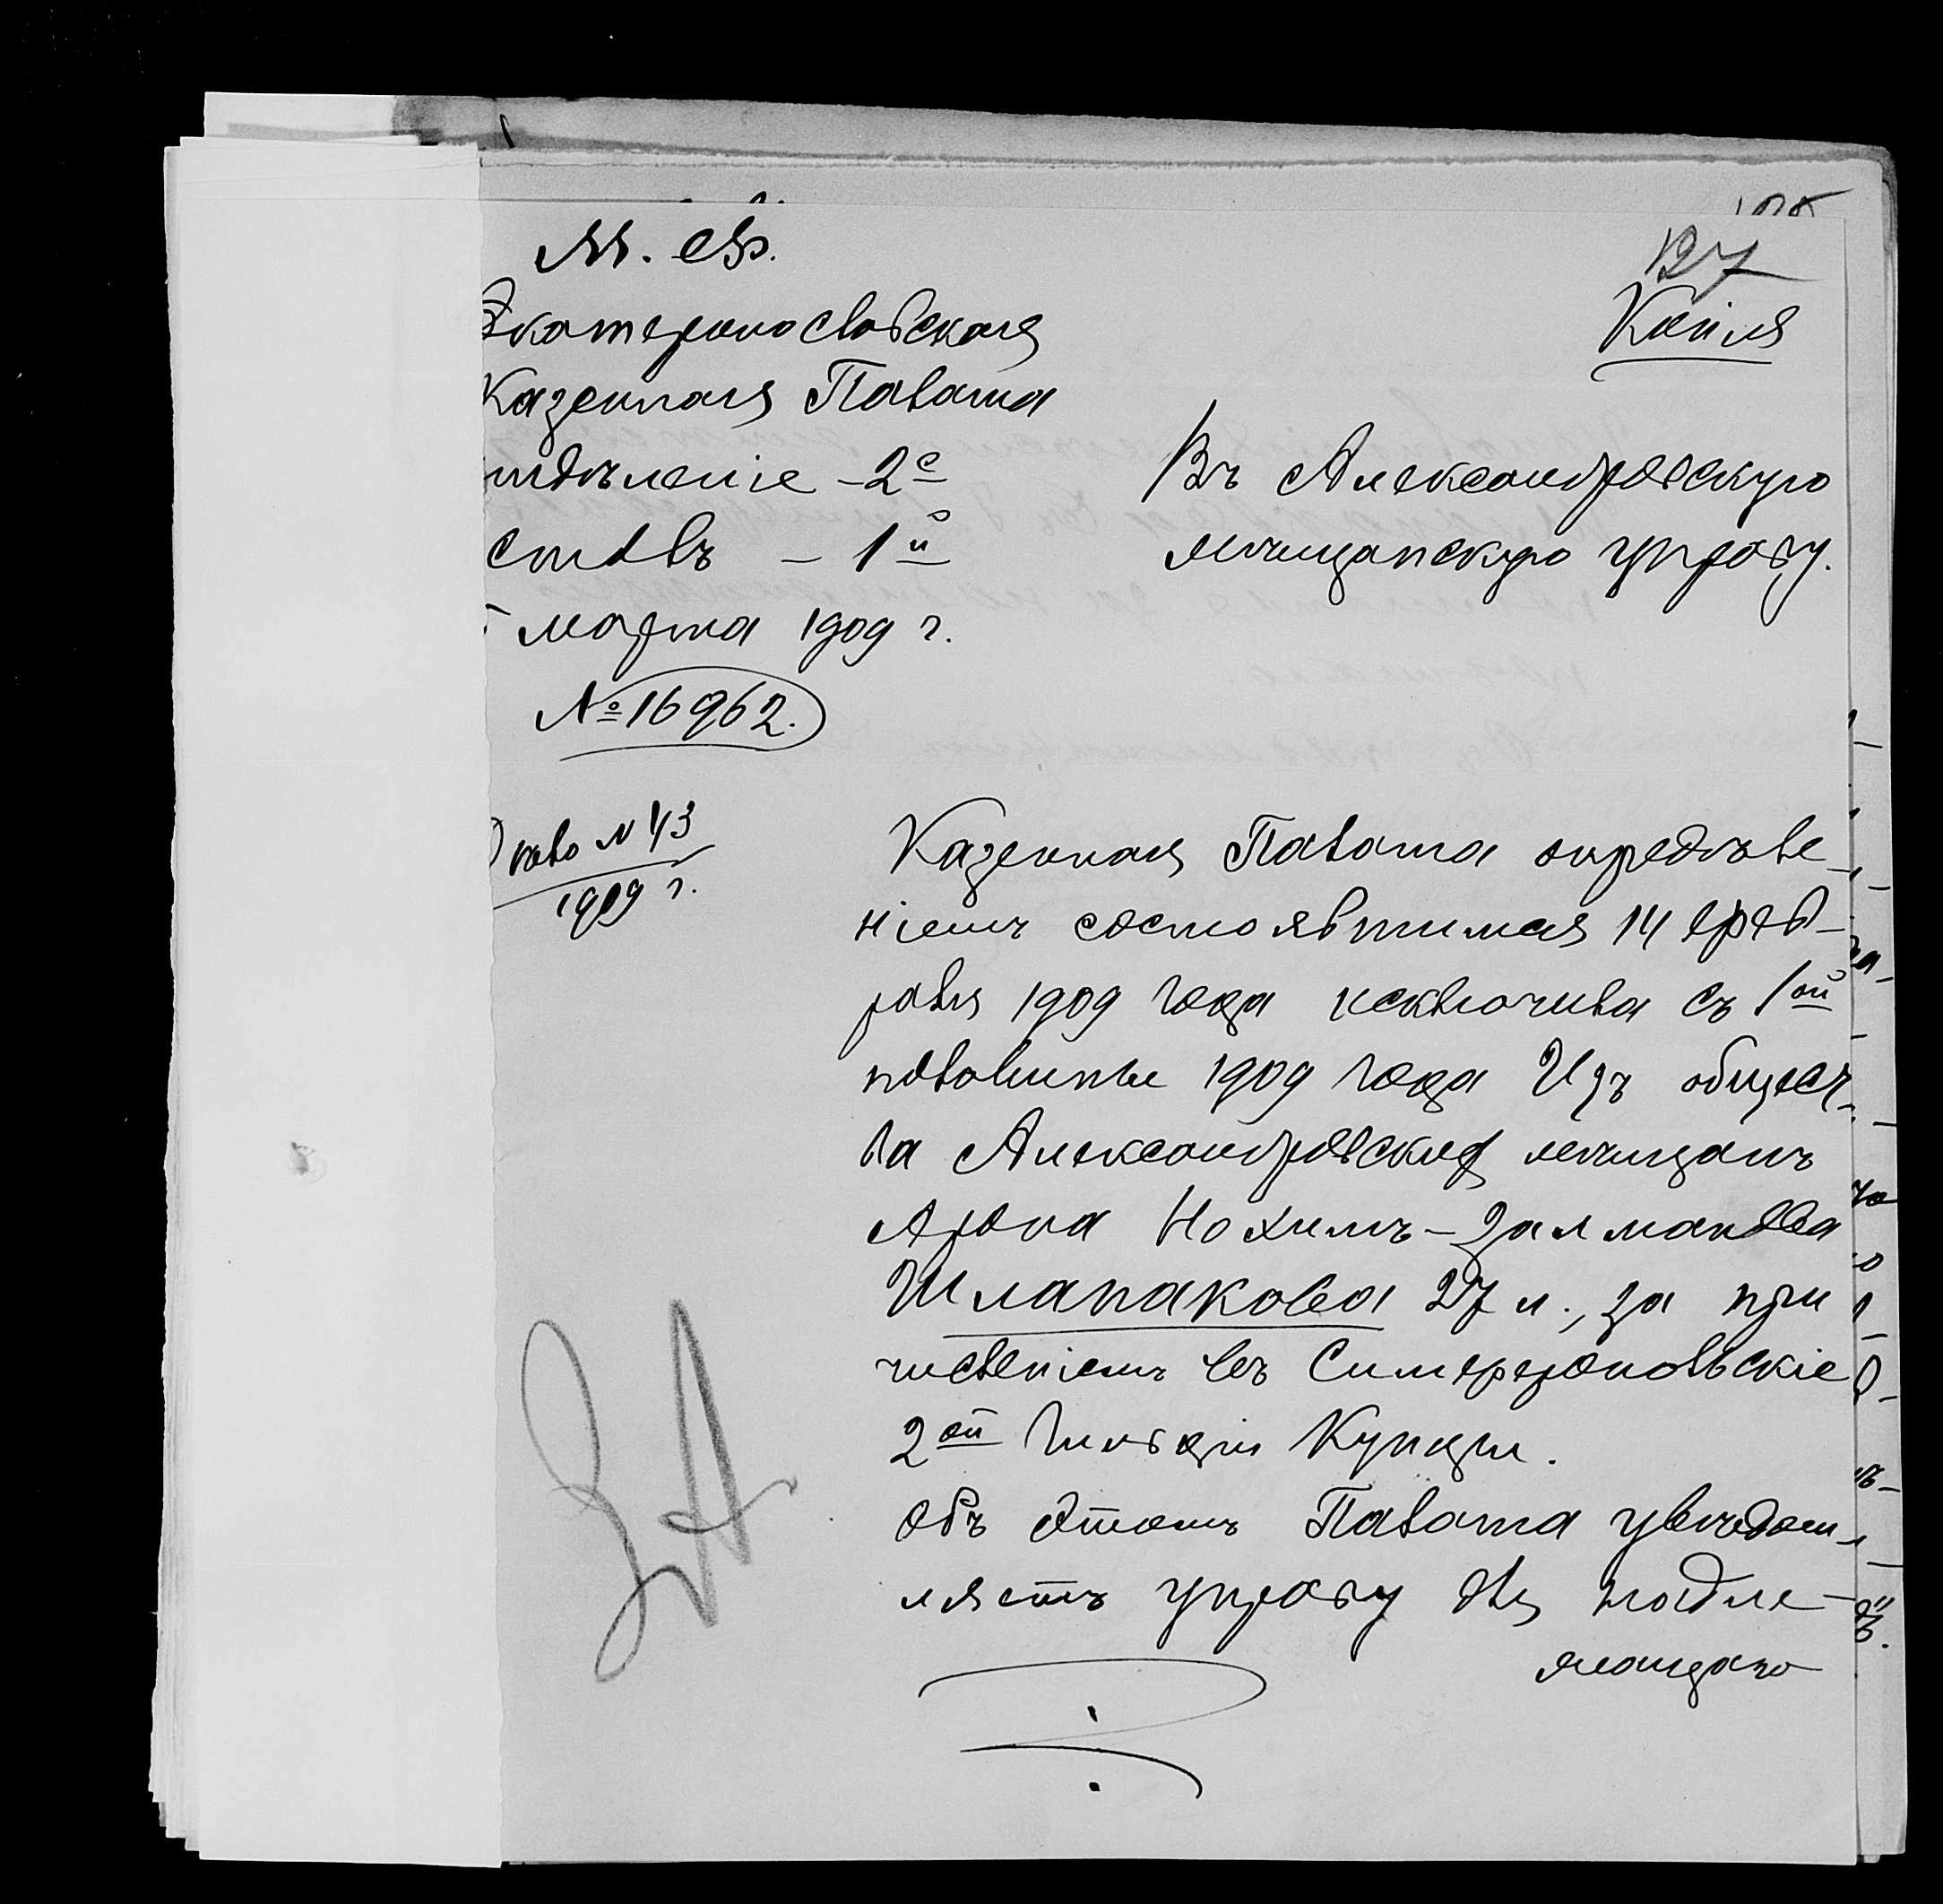 М. Ф.
Екатеринославская
Казенная Палата
тдѣленіе - 2е
столъ - 1й
марта 1909 г.
№ 16962.
127
Копія
Въ Александровскую
мѣщанскую управу.
Дѣло № 43
1909 г.
Казенная Палата опредѣле-
ніемъ состоявшимся 14 фев-
раля 1909 года исключила съ 1ой
половины 1909 года Изъ общест-
ва Александровских мѣщанъ
Арона Нохимъ-Залманова
Шлапакова 27 л., за при
численіемъ въ Симферопольскіе
2ой Гильдіи Купцы.
Объ этомъ Палата увѣдом-
ляетъ управу для надле-
жащаго